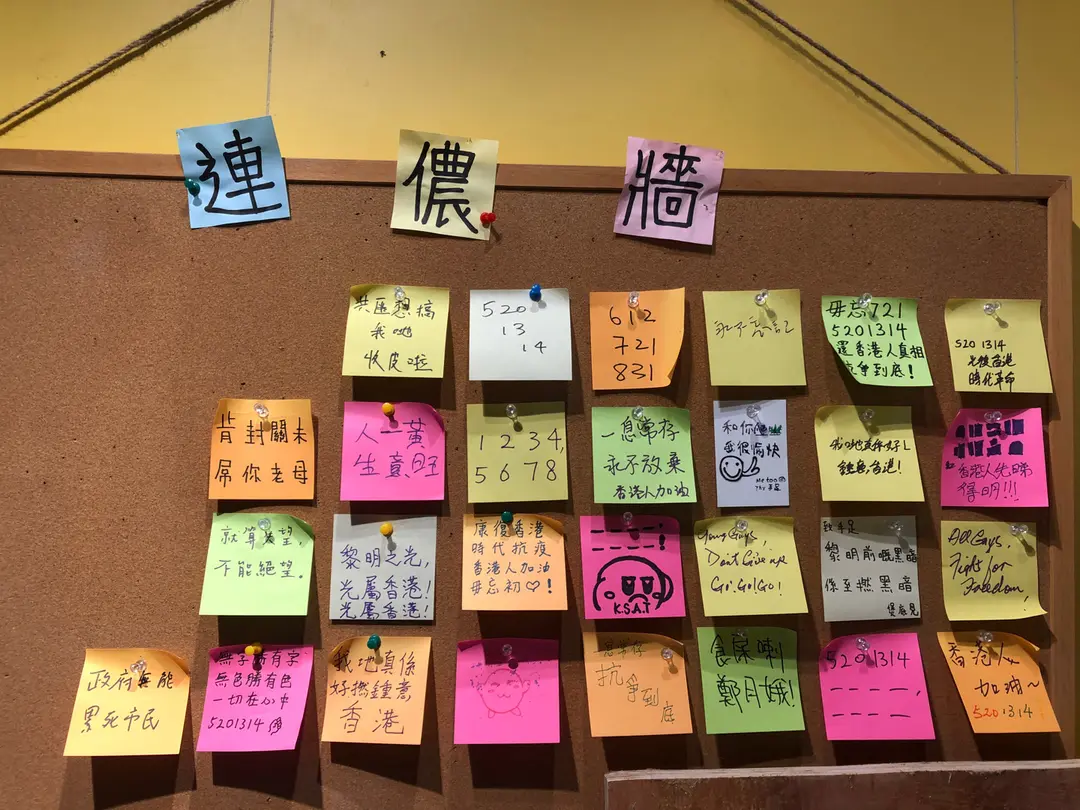 連 儂 牆
共匪想搞
我哋
收皮啦
520
13
14
612
721
831
永不忘記
毋忘721
5201314
還香港人真相
抗爭到底!
520 1314
光復香港
時代革命
背封關未
屌你老母
人一黃
生意旺
1 2 3 4,
5 6 7 8
一息尚存
永不放棄
香港人加油
和你
愉快
Me too
香港人先睇
得明!!!
鍾意香港!
就算失望,
不能絕望。
黎明之光,
光屬香港!
光屬香港!
康復香港
時代抗疫
香港人加油
毋忘初♡!
_ _ _ _!
_ _ _ _!
K.S.A.T
Gang Guys,
Don't Give up
Go! Go! Go!
致手足
黎明前嘅黑暗
係至撚黑暗
煲底見
All Guys,
Fight for
Freedom!
政府無能
累死市民
無字勝有字
無色勝有色
一切在心中
5201314
我地真係
好撚鍾意
香港
一息尚存
抗
爭到
底
食屎喇
鄭月娥!
5201314
_ _ _ _,
_ _ _ _
香港人
加油~
5201314